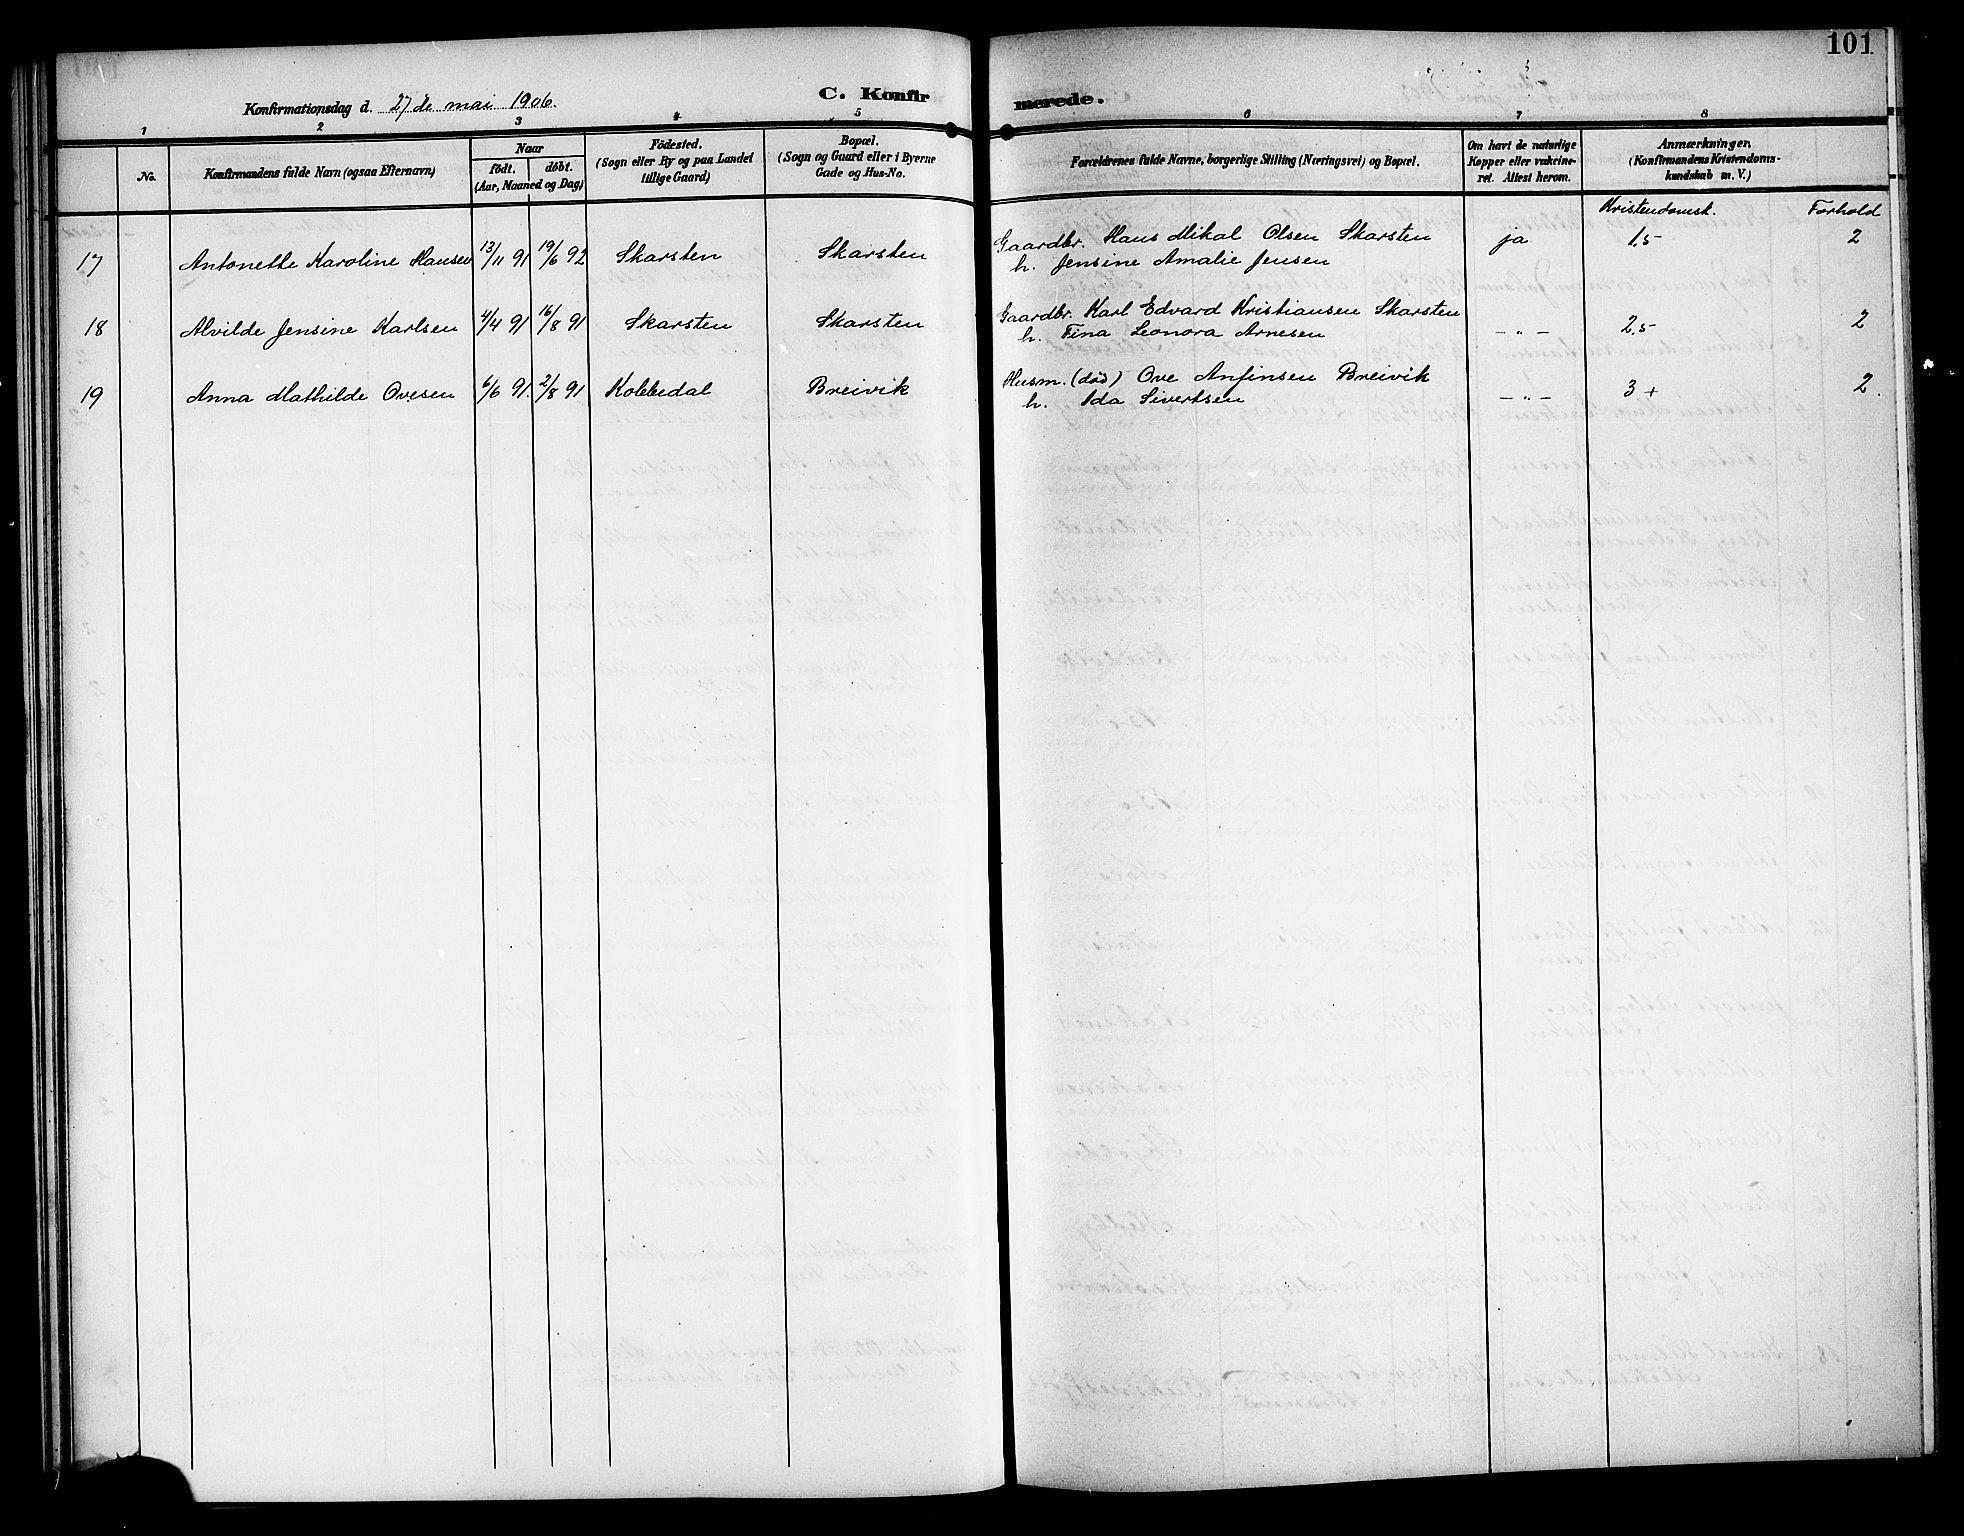 101
Konfirmationsdag d. 27de mai 1906.
C. Konfir merede.
1 2 3 4 5 6 7 8
No.
Konfirmandens fulde Navn (ogsaa Efternavn)
Naar
födt. döbt.
(Aar, Maaned og Dag)
Födested.
(Sogn eller By og paa Landet
tillige Gaard)
Bopæl.
(Sogn og Gaard eller i Byerne
Gade og Hus-No.
Forældrenes fulde Navne, borgerlige Stilling (Næringsvei) og Bopæl.
Om havt de naturlige
Kopper eller vakcine-
ret. Attest herom.
Anmærkninger.
(Konfirmandens Kristendoms-
kundskab m. V.)
Kristendomsk. Forhold
17 Antonette Karoline Hansen 13/11 91 19/6 92 Skarsten Skarsten Gaardbr. Hans Mikal Olsen Skarsten ja 1,5- 2
h. Jensine Amalie Jensen
18 Alvilde Jensine Karlsen 4/4 91 16/8 91 Skarsten Skarsten Gaardbr. Karl Edvard Kristiansen Skarsten - " - 2,5- 2
h. Fina Leonora Arnesen
19 Anna Mathilde Ovesen 6/6 91. 2/8 91 Kobbedal Breivik Husm. (død) Ove Anfinsen Breivik - " - 3 + 2.
h. Ida Sivertsen